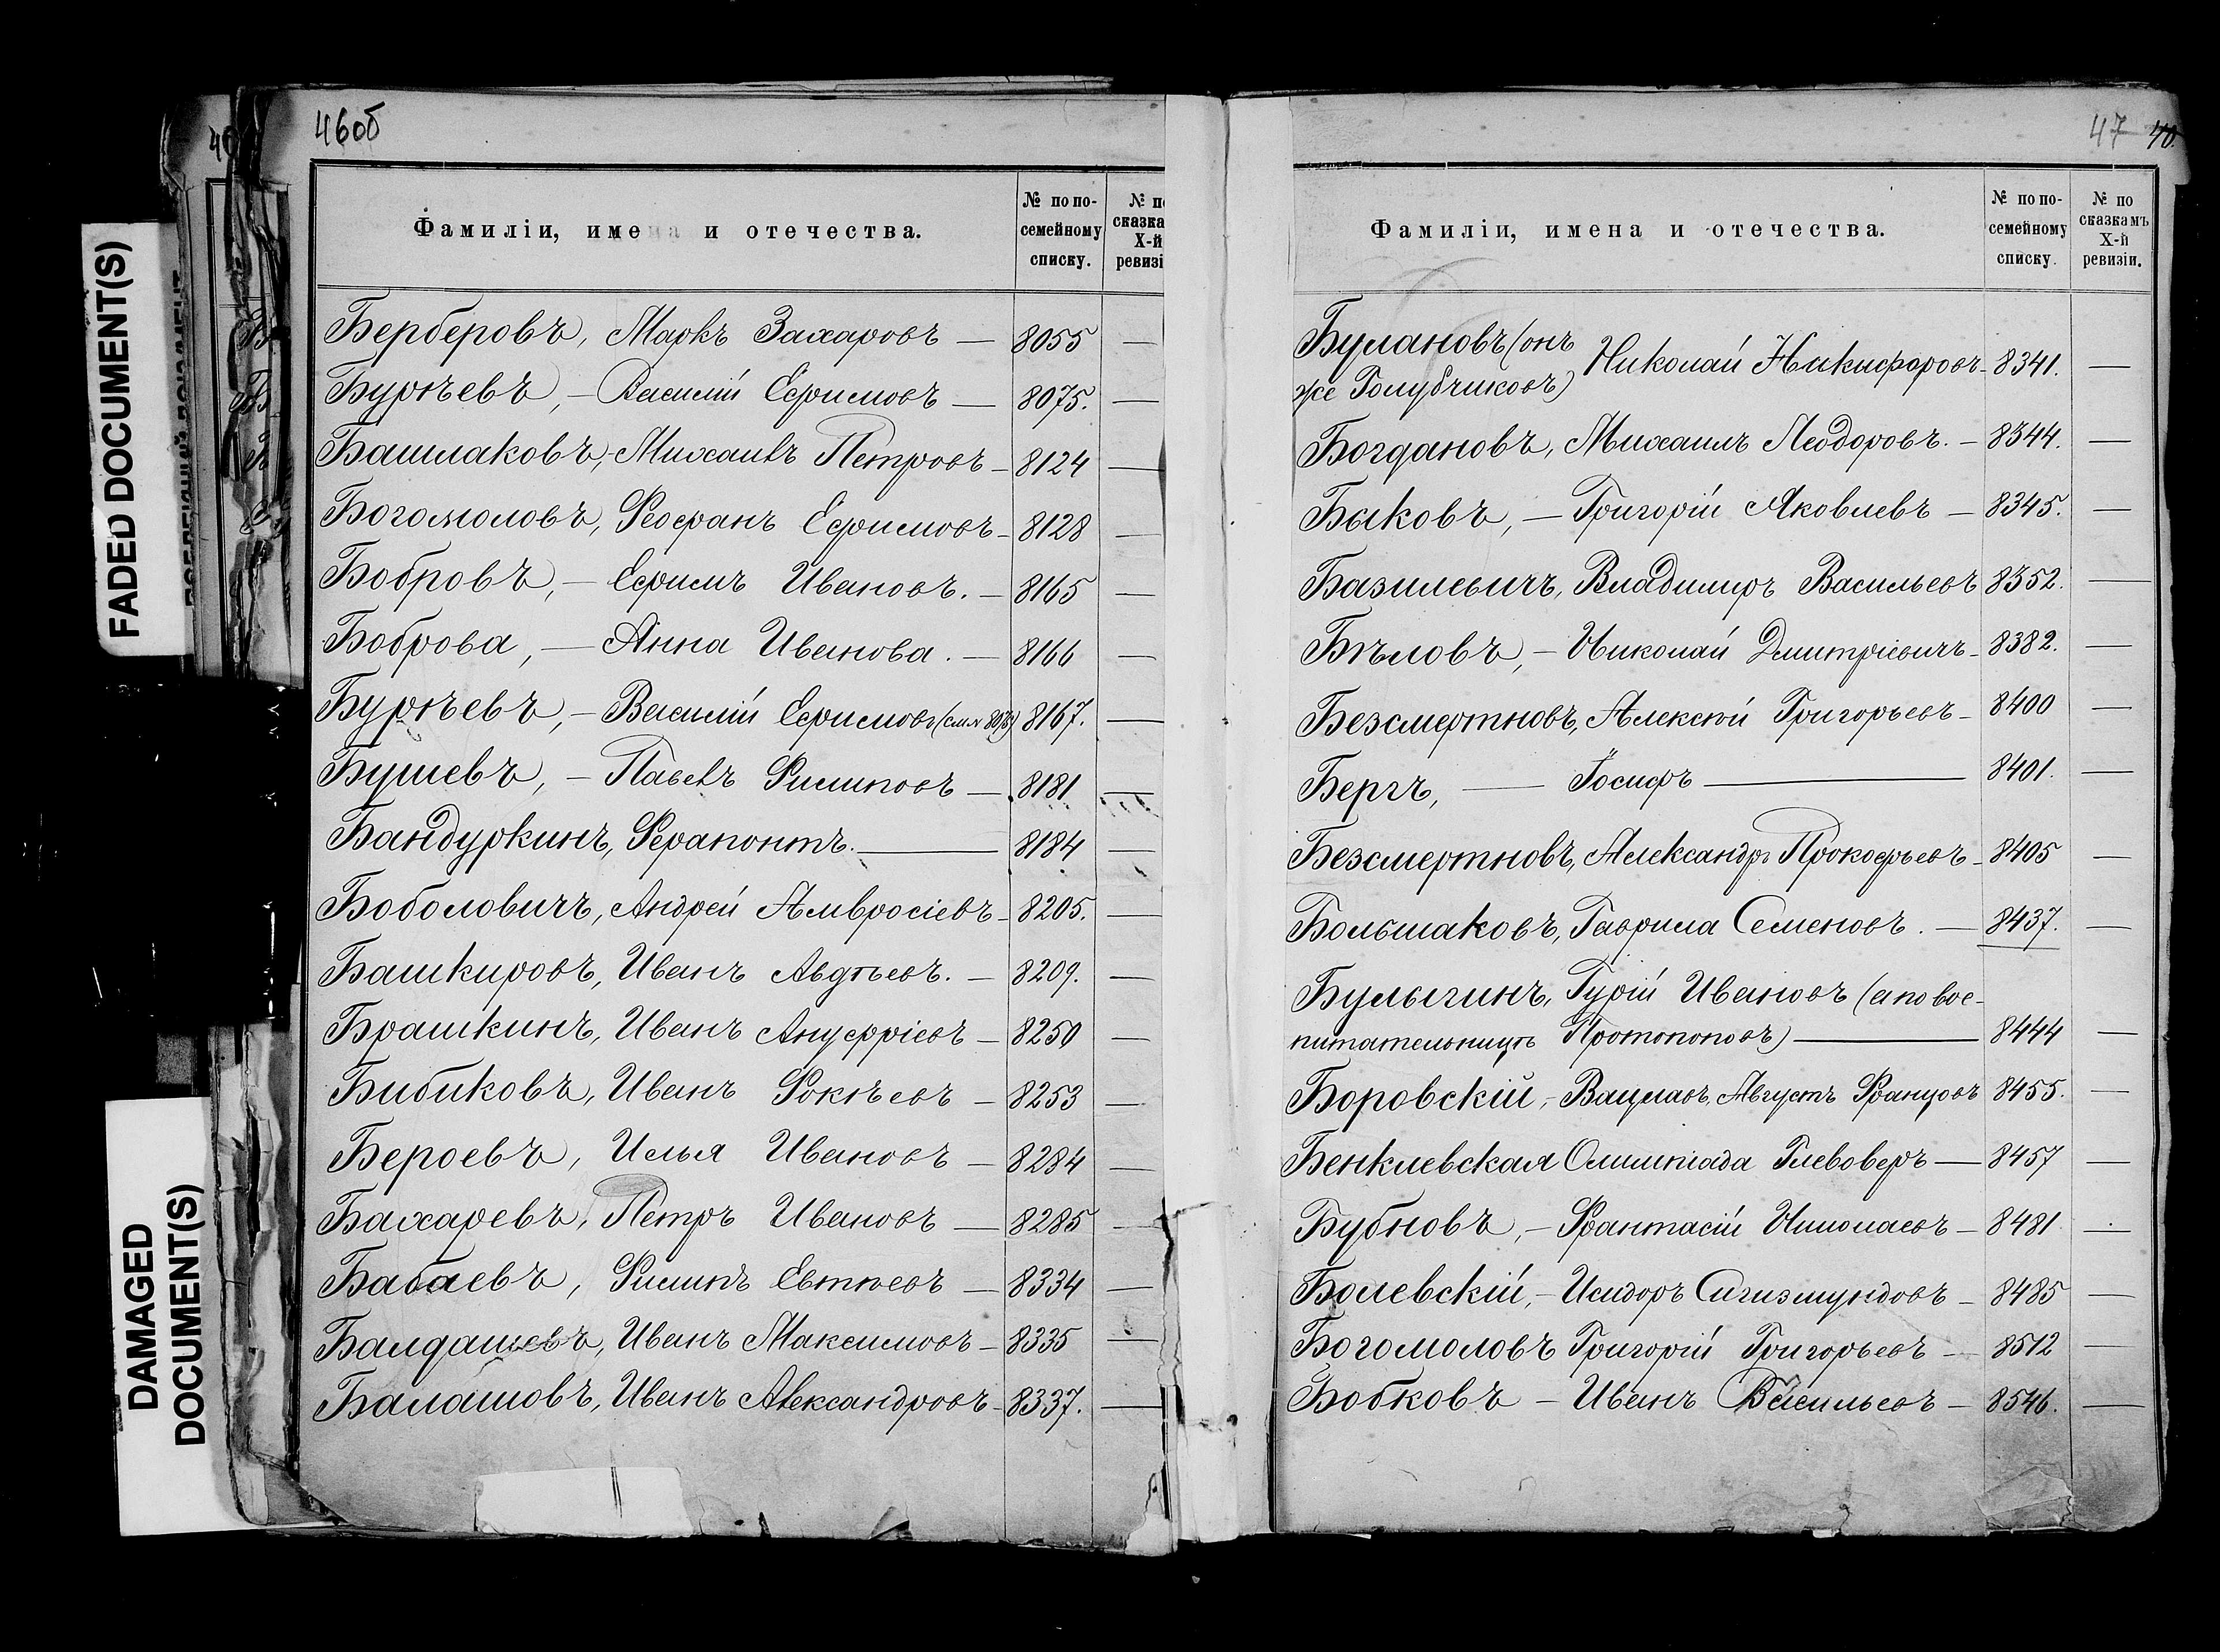 46об
Фамиліи, имена и отчества.
№ по по-
семейному
списку.
№ по
сказка
X-й
ревизі
Берберовъ, Маркъ Захаровъ — 8055 —
Бурѣевъ, — Василій Ефимовъ — 8075. —
Башлаковъ, Михаилъ Петровъ — 8124 —
Богомоловъ, Феофанъ Ефимовъ — 8128 —
Бобровъ, — Ефимъ Ивановъ. — 8165 —
Боброва, — Анна Иванова. — 8166 —
Бурѣевъ, — Василій Ефимовъ (см. № 8075) 8167. —
Бушевъ, — Павелъ Филиповъ — 8181 —
Бандуркинъ, Ферапонтъ. — 8184 —
Боболовичъ, Андрей Амвросіевъ — 8205. —
Башкировъ, Иванъ Авдѣевъ. — 8209. —
Брашкинъ, Иванъ Ануфріевъ — 8250 —
Бибиковъ, Иванъ Фокѣевъ — 8253 —
Бероевъ, Илья Ивановъ — 8284 —
Бахаревъ, Петръ Ивановъ — 8285 —
Бабаевъ, Филипъ Евтѣевъ — 8334 —
Балдашевъ, Иванъ Максимовъ — 8335 —
Балашовъ, Иванъ Александровъ — 8337. —
47
Фамиліи, имена и отчества.
№ по по-
семейному
списку.
№ по
сказкамъ
X-й
ревизіи.
Булановъ (онъ
же Голубчиковъ) Николай Никифоровъ — 8341. —
Богдановъ, Михаилъ Леодоровъ. — 8344. —
Быковъ, — Григорій Яковлевъ — 8345. —
Базилевичъ, Владимиръ Васильевъ 8352. —
Бѣловъ, — Николай Дмитріевичъ — 8382. —
Безсмертновъ, Алексѣй Григорьевъ — 8400 —
Бергъ, — Іосифъ — 8401. —
Безсмертновъ, Александръ Прокофьевъ — 8405 —
Большаковъ, Гаврила Семеновъ. — 8437. —
Булыгинъ, Гурій Ивановъ (а по вос-
питательницѣ Протопоповъ) — 8444 —
Боровскій, — Вацлавъ, Августъ Францовъ 8455. —
Бенклевская Олимпіада Глевоверъ — 8457 —
Бубновъ, — Франтасій Николаевъ — 8481 —
Болевскій, — Исидоръ Сигизмундовъ — 8485 —
Богомоловъ Григорій Григорьевъ — 8512 —
Бобковъ — Иванъ Васильевъ — 8546. —
FADED DOCUMENT(S)
DAMAGED
DOCUMENT(S)